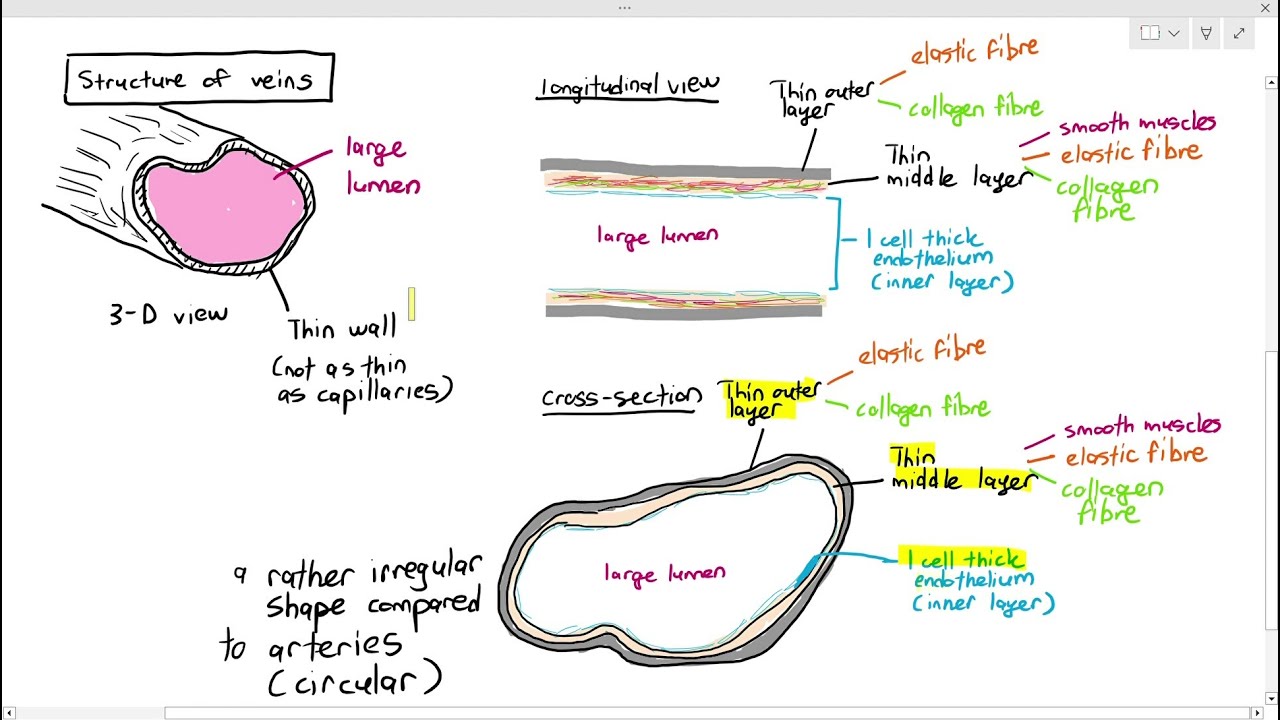 Structure of veins
large
lumen
3-D view
Thin wall
(not as thin
as capillaries)
longitudinal view
Thin outer
layer
elastic fibre
collagen fibre
Thin
middle layer
smooth muscles
elastic fibre
collagen
fibre
large lumen
1 cell thick
endothelium
(inner layer)
cross-section
Thin outer
layer
elastic fibre
collagen fibre
Thin
middle layer
smooth muscles
elastic fibre
collagen
fibre
large lumen
1 cell thick
endothelium
(inner layer)
a rather irregular
shape compared
to arteries
(circular)